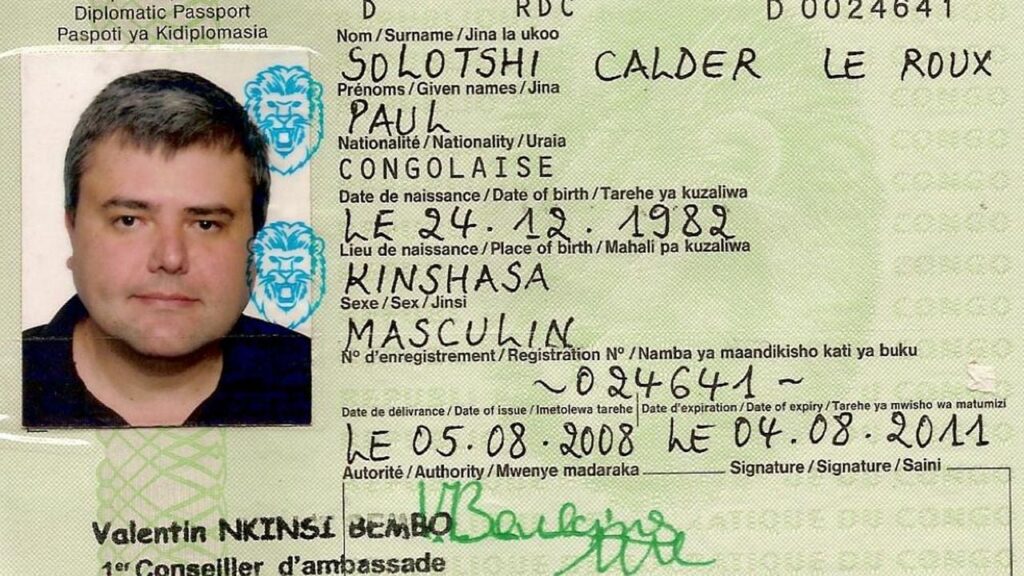 Diplomatic Passport
Paspoti ya Kidiplomasia
D RDC D 0024641
Nom / Surname / Jina la ukoo
SOLOTSHI CALDER LE ROUX
Prénoms / Given names / Jina
PAUL
Nationalité / Nationality / Uraia
CONGOLAISE
Date de naissance / Date of birth / Tarehe ya kuzaliwa
LE 24.12.1982
Lieu de naissance / Place of birth / Mahali pa kuzaliwa
KINSHASA
Sexe / Sex / Jinsi
MASCULIN
N° d'enregistrement / Registration N° / Namba ya maandikisho kati ya buku
~024641~
Date de délivrance / Date of issue / Imetolewa tarehe Date d'expiration / Date of expiry / Tarehe ya mwisho wa matumizi
LE 05.08.2008 LE 04.08.2011
Autorité / Authority / Mwenye madaraka Signature / Signature / Saini
Valentin NKINSI BEMBO
1er Conseiller d'ambassade